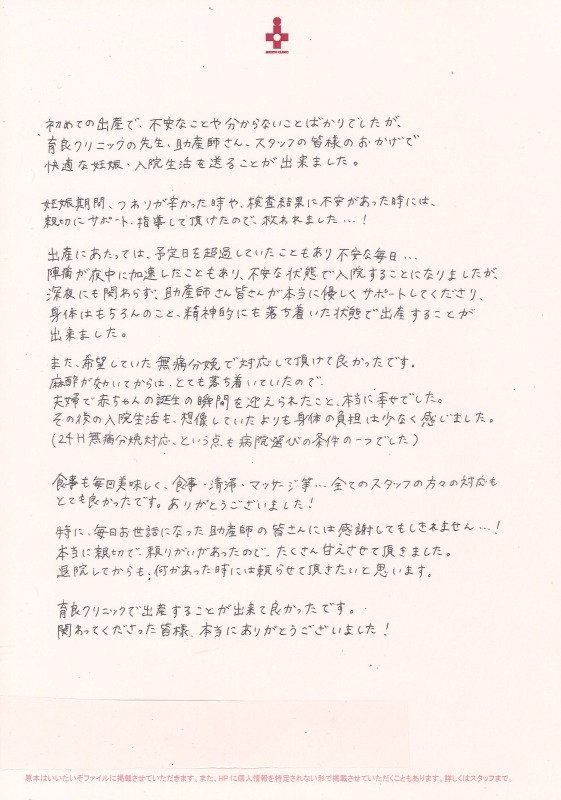 初めての出産で、不安なことや分からないことばかりでしたが、
育良クリニックの先生、助産師さん、スタッフの皆様のおかげで
快適な妊娠・入院生活を送ることが出来ました。
妊娠期間、つわりが辛かった時や、検査結果に不安があった時には、
親切にサポート・指導して頂けたので、救われました…!
出産にあたっては、予定日を超過していたこともあり不安な毎日…
陣痛が夜中に加速したこともあり、不安な状態で入院することになりましたが、
深夜にも関わらず、助産師さん皆さんが本当に優しくサポートしてくださり、
身体はもちろんのこと、精神的にも落ち着いた状態で出産することが
出来ました。
また、希望していた無痛分娩で対応して頂けて良かったです。
麻酔が効いてからは、とても落ち着いていたので、
夫婦で赤ちゃんの誕生の瞬間を迎えられたこと、本当に幸せでした。
その後の入院生活も、想像していたよりも身体の負担は少なく感じました。
(24H無痛分娩対応、という点も病院選びの条件の一つでした)
食事も毎回美味しく、食事・清掃・マッサージ等…全てのスタッフの方々の対応も
とても良かったです。ありがとうございました!
特に、毎日お世話になった助産師の皆さんには感謝してもしきれません…!
本当に親切で、頼りがいがあったので、たくさん甘えさせて頂きました。
退院してからも、何かあった時には頼らせて頂きたいと思います。
育良クリニックで出産することが出来て良かったです。
関わってくださった皆様、本当にありがとうございました!
原本はいいたいぞファイルに掲載させていただきます。また、HPに個人情報を特定されない形で掲載させていただくこともあります。詳しくはスタッフまで。